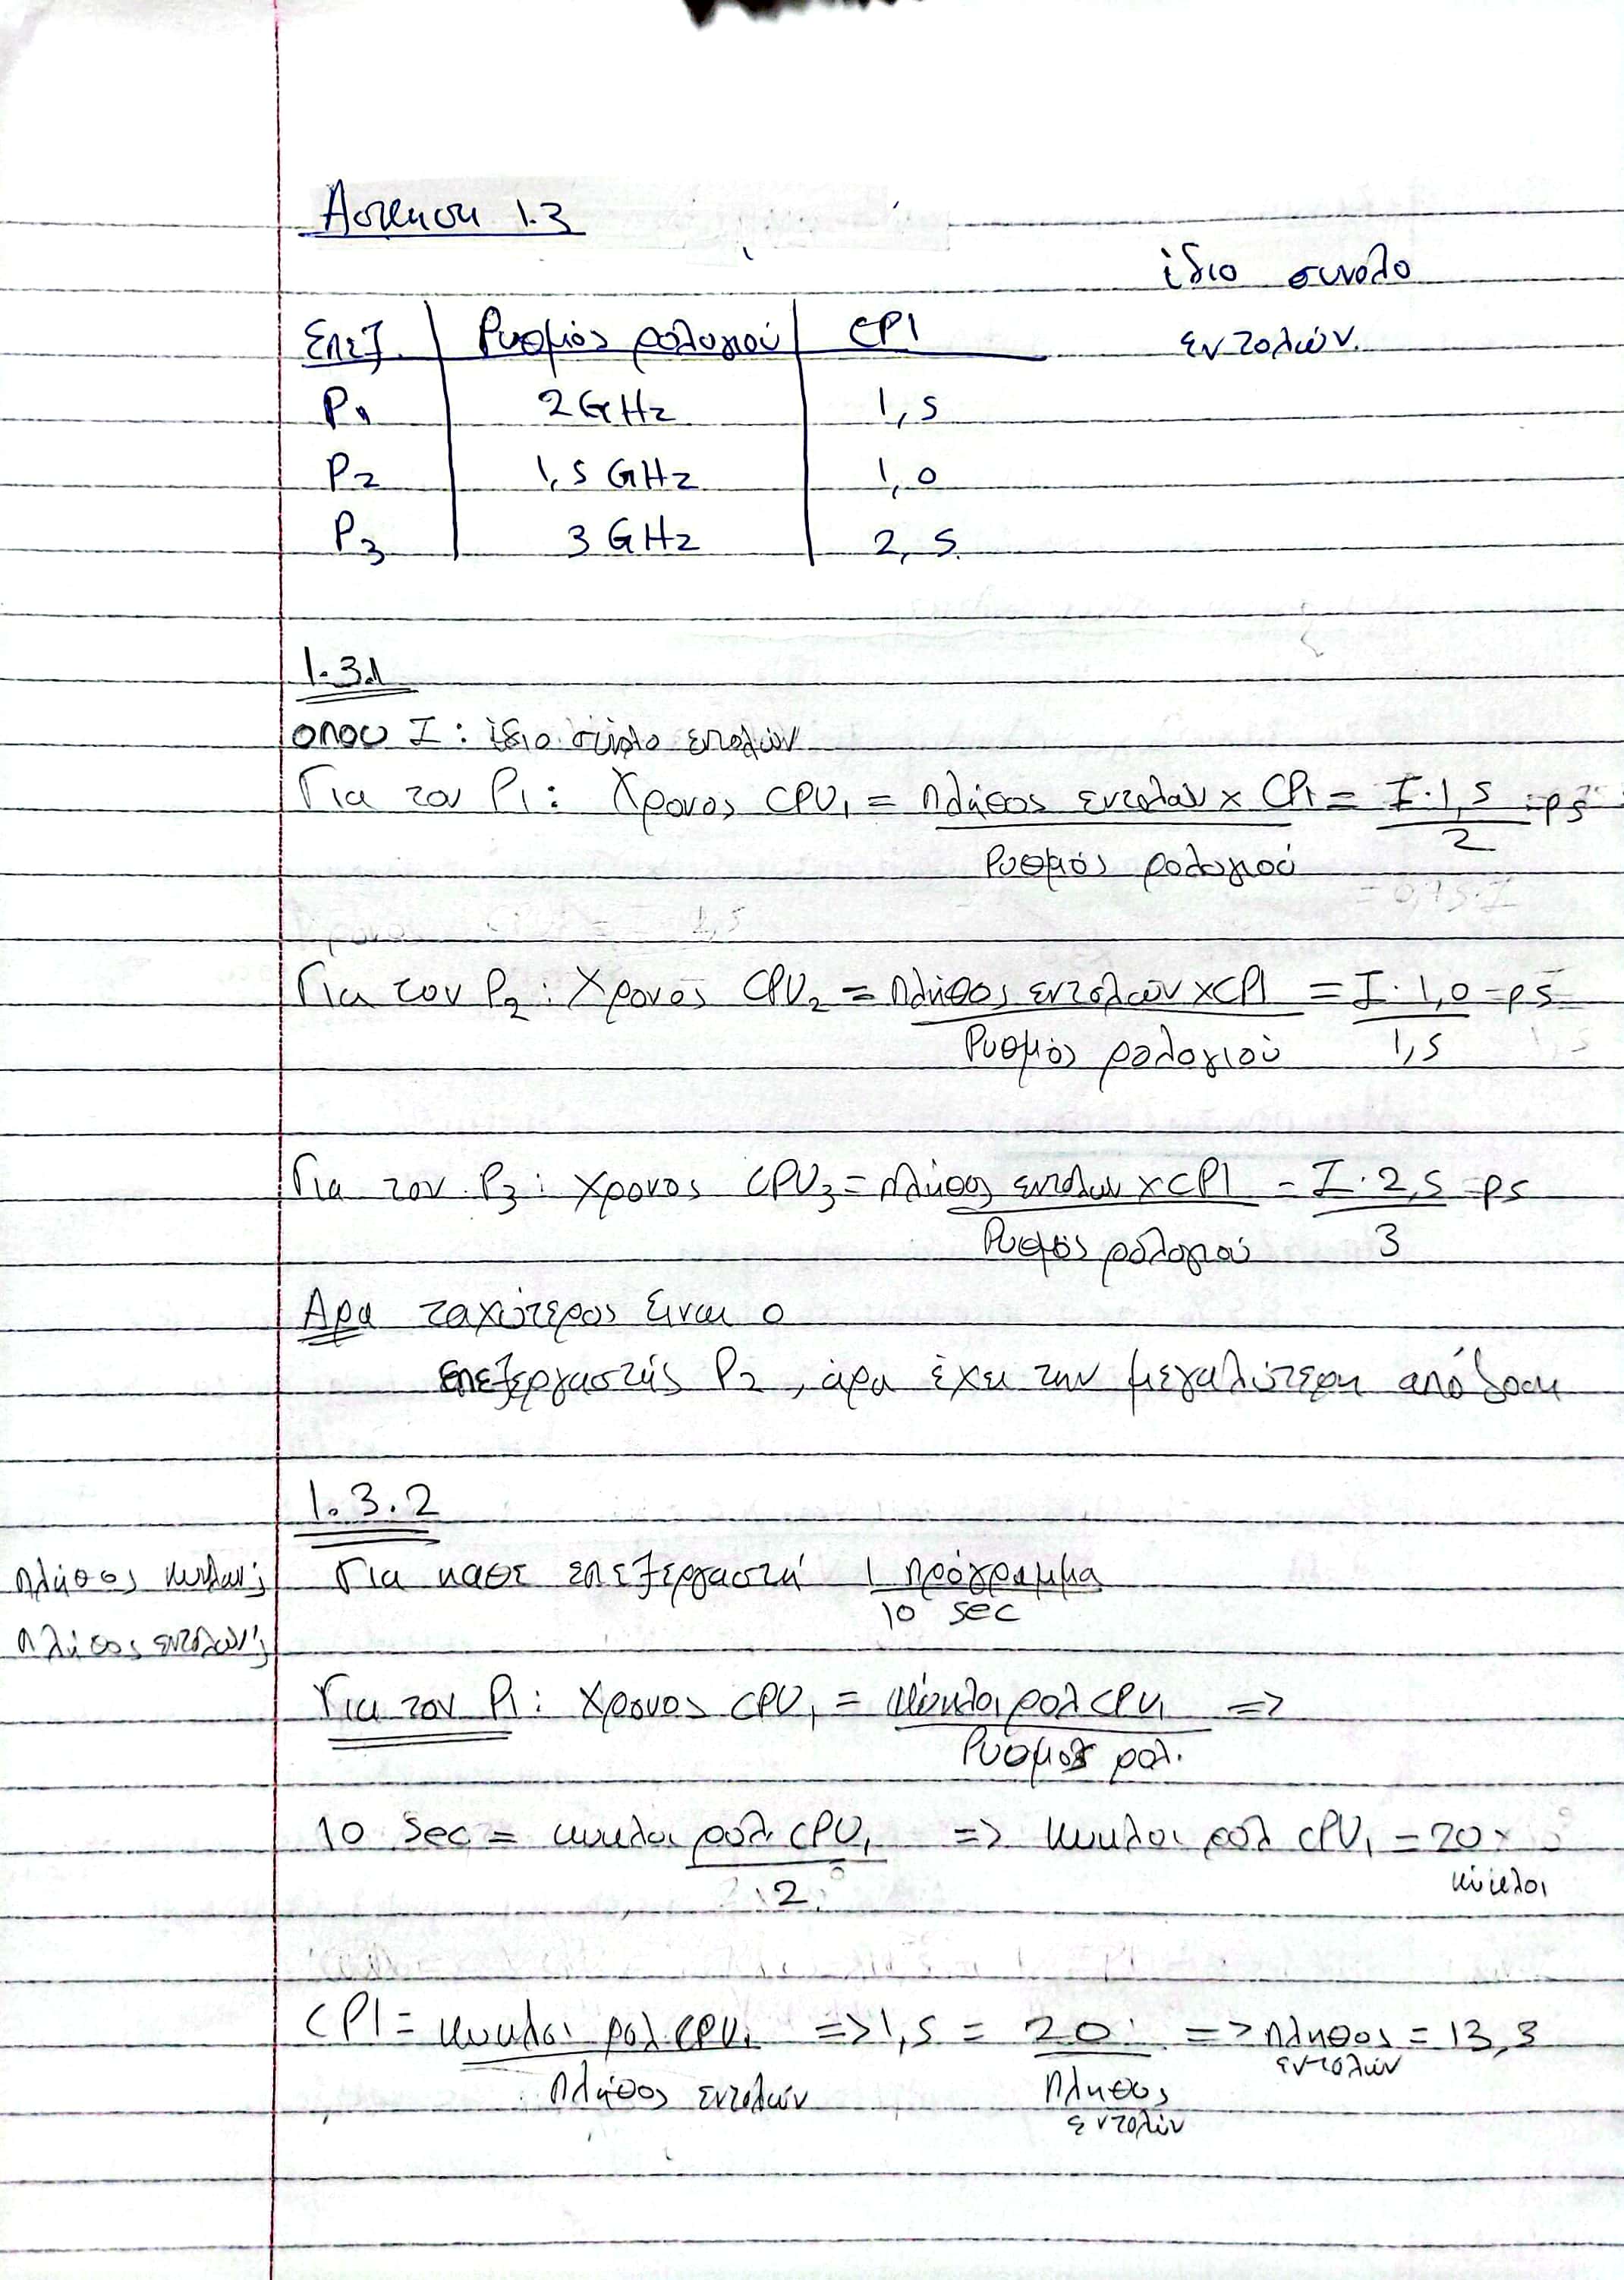 Ασκηση 1.3
ίδιο συνολο
εντολών.
Επεξ. Ρυθμός ρολογιού CPI
P1 2GHz 1,5
P2 1,5 GHz 1,0
P3 3 GHz 2,5
1.3.1
οπου I: ίδιο σύνολο εντολών
Για τον P1: Χρονος CPU1 = πλήθος εντολών x CPI = I·1,5 ps
Ρυθμός ρολογιού 2
= 0,75·I
Για τον P2: Χρονος CPU2 = πλήθος εντολών x CPI = I·1,0 ps
Ρυθμός ρολογιού 1,5
Για τον P3: χρονος CPU3 = πλήθος εντολων x CPI = I·2,5 ps
Ρυθμός ρολογιού 3
Αρα ταχύτερος είναι ο
επεξεργαστής P2, άρα έχει την μεγαλύτερη απόδοση
1.3.2
πλήθος κυκλων; Για καθε επεξεργαστή 1 πρόγραμμα
10 sec
πλήθος εντολών;
Για τον P1: Χρονος CPU1 = κύκλοι ρολ CPU1 =>
Ρυθμος ρολ.
10 sec = κυκλοι ρολ CPU1 => κυκλοι ρολ CPU1 = 20
2 κύκλοι
CPI = κυκλοι ρολ CPU1 => 1,5 = 20 => πληθος = 13,3
εντολών
πλήθος εντολών πληθος
εντολών